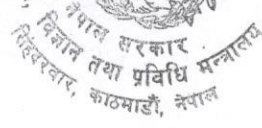 नेपाल सरकार
विज्ञान तथा प्रविधि मन्त्रालय
सिंहदरवार, काठमाडौं, नेपाल